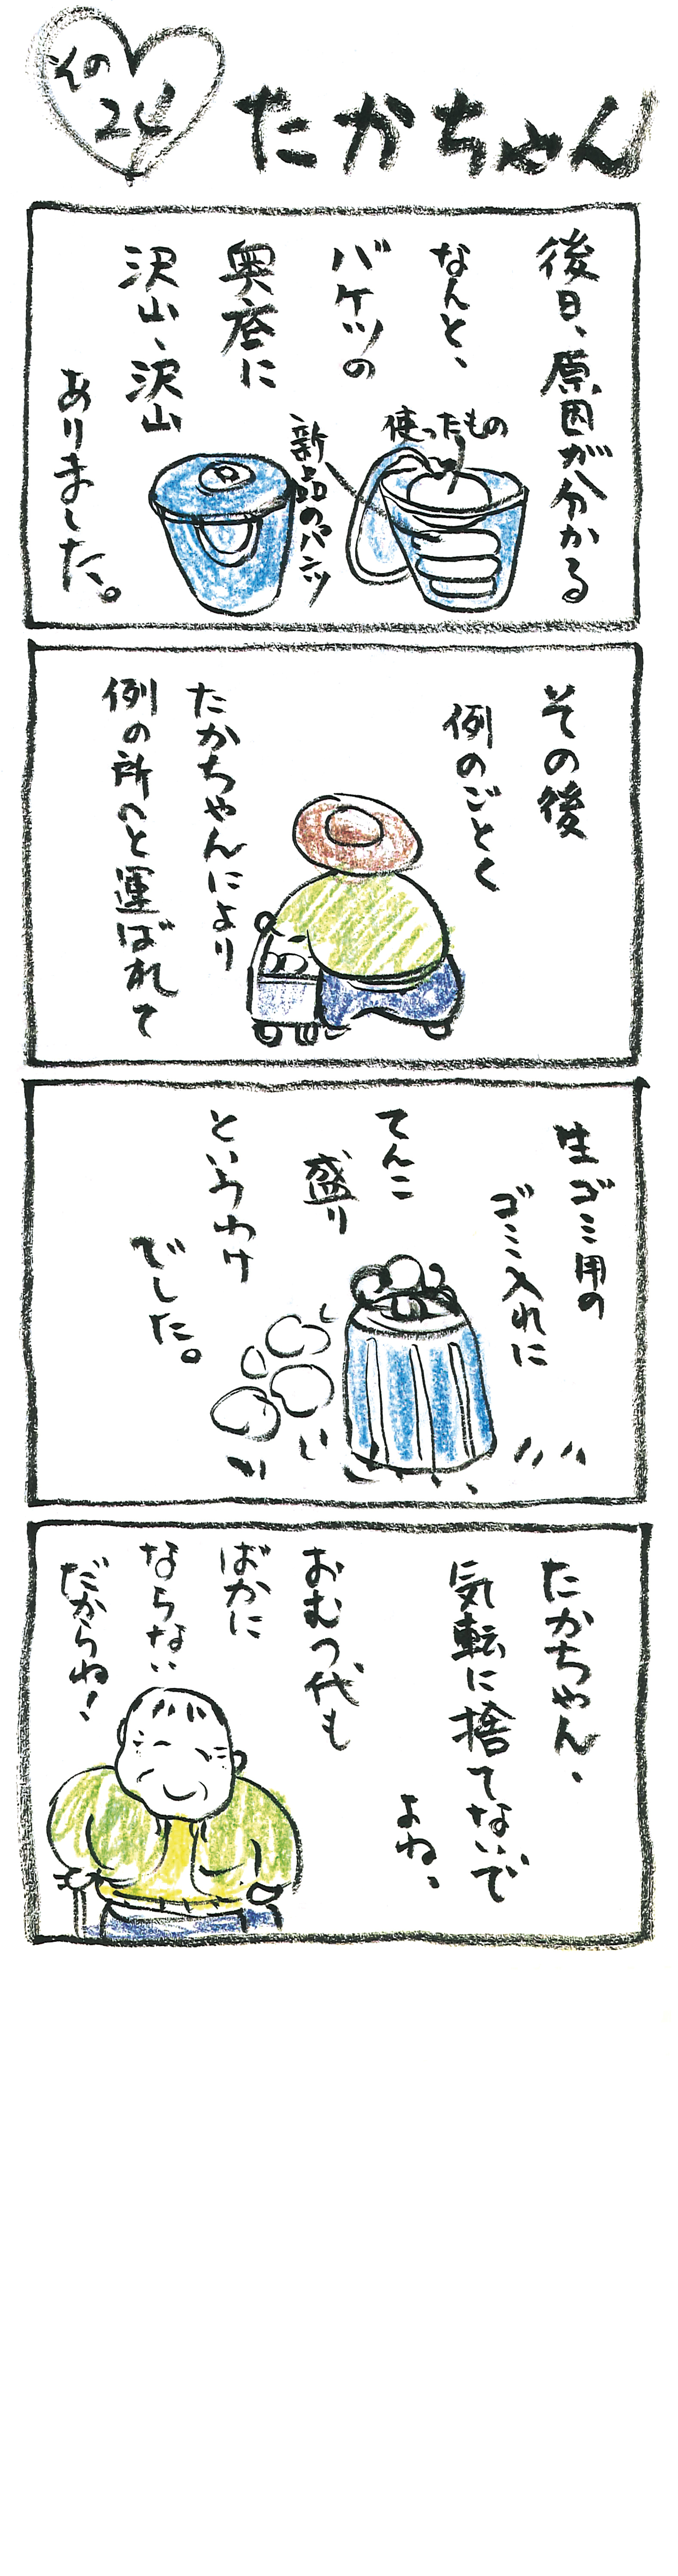 その
24
たかちゃん
後日、原因が分かる
なんと、
バケツの
奥底に
沢山、沢山
ありました。
使ったもの
新品のパンツ
その後
例のごとく
たかちゃんにより
例の所へと運ばれて
生ゴミ用の
ゴミ入れに
てんこ
盛り
というわけ
でした。
たかちゃん、
気転に捨てないで
よね、
おむつ代も
ばかに
ならない
だからね!